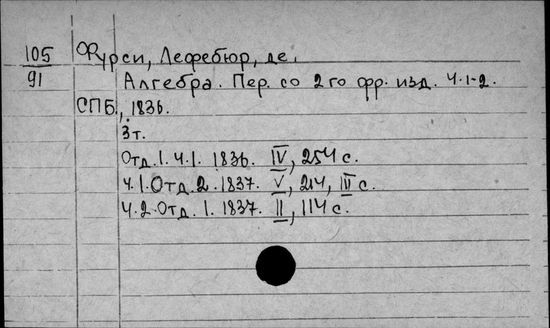 105 Фурси, Лефебюр, де,
91 Алгебра. Пер. со 2го фр. изд. Ч.1-2.
СПБ., 1836.
3т.
Отд.1.Ч.1. 1836. IV, 254 с.
Ч.1.Отд.2. 1837. V, 214, III с.
Ч.2.Отд.1. 1837. II, 114 с.